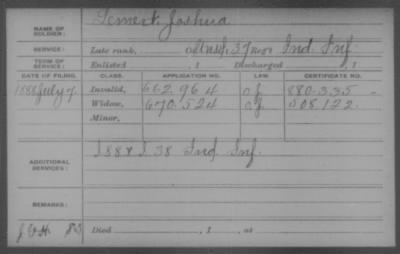 NAME OF SOLDIER: Joshua
SERVICE: Late rank, 37 Ind. Inf.
TERM OF SERVICE: Enlisted , 1 Discharged , 1
DATE OF FILING. CLASS. APPLICATION NO. LAW. CERTIFICATE NO.
1888 July 7. Invalid, 662.964 880.335
Widow, 670.524 508.122
Minor,
ADDITIONAL SERVICES: 38 Ind. Inf.
REMARKS:
Died , 1 , at